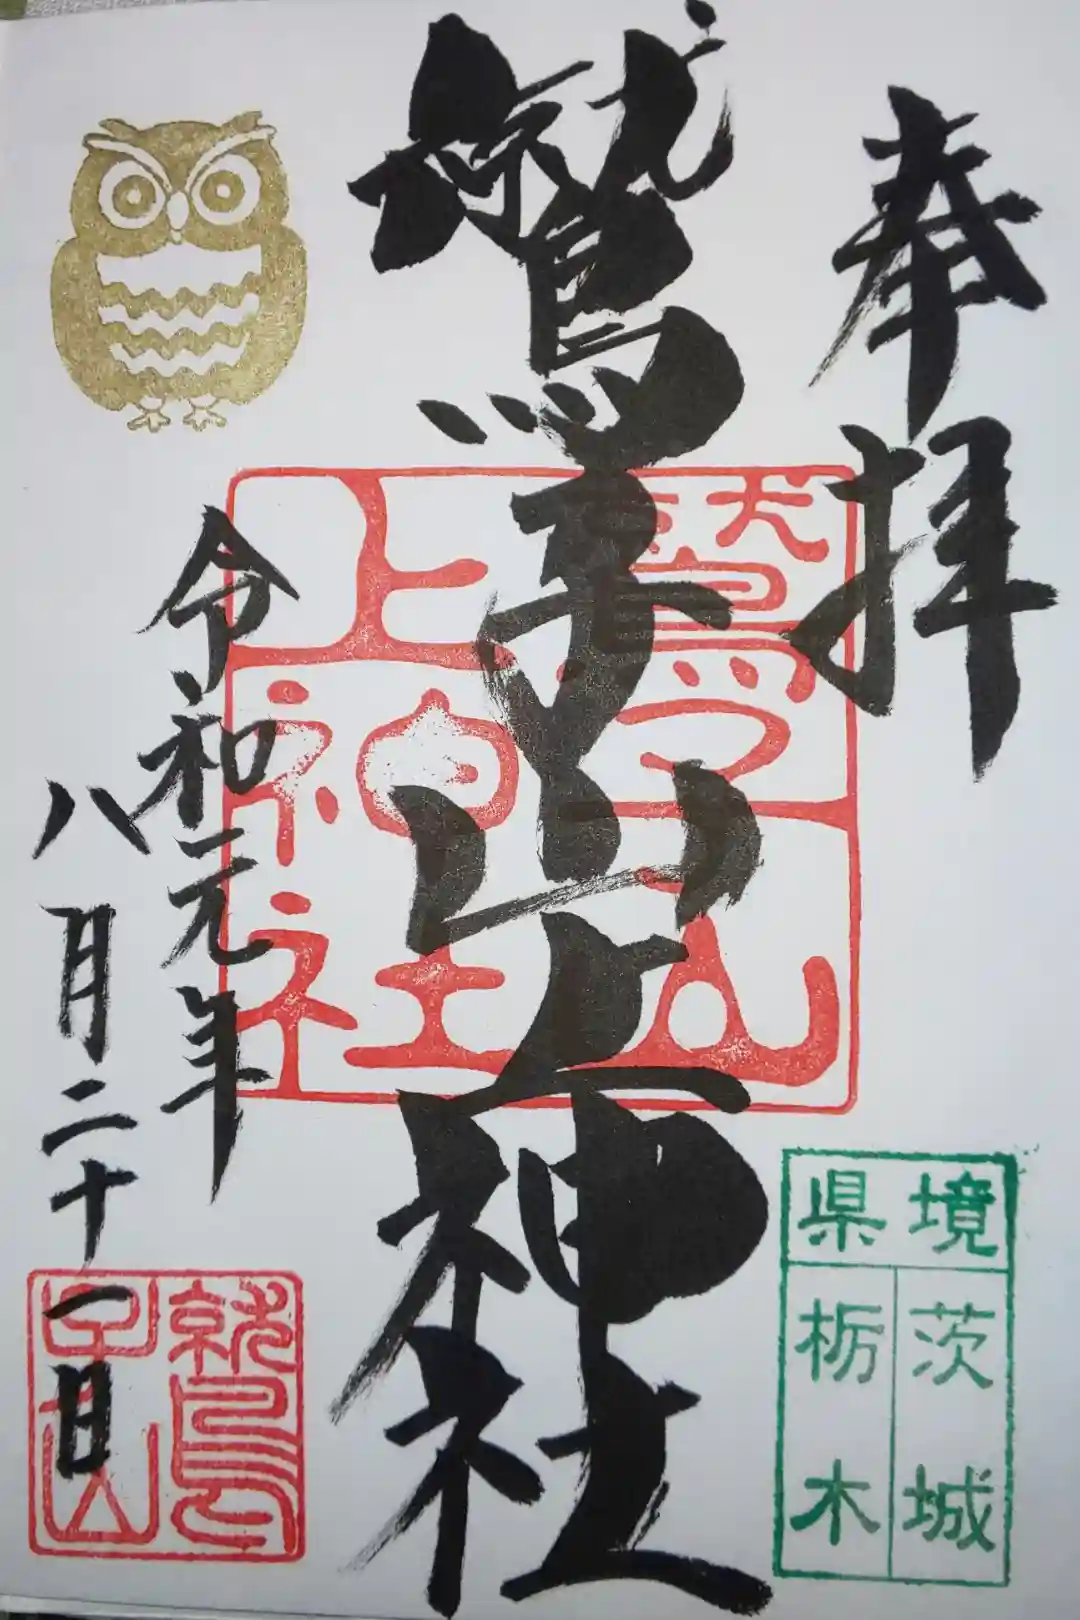 奉拝
鷲子山上神社
令和元年
八月二十一日
鷲子山
上神社
鷲子山
県境
茨城
栃木